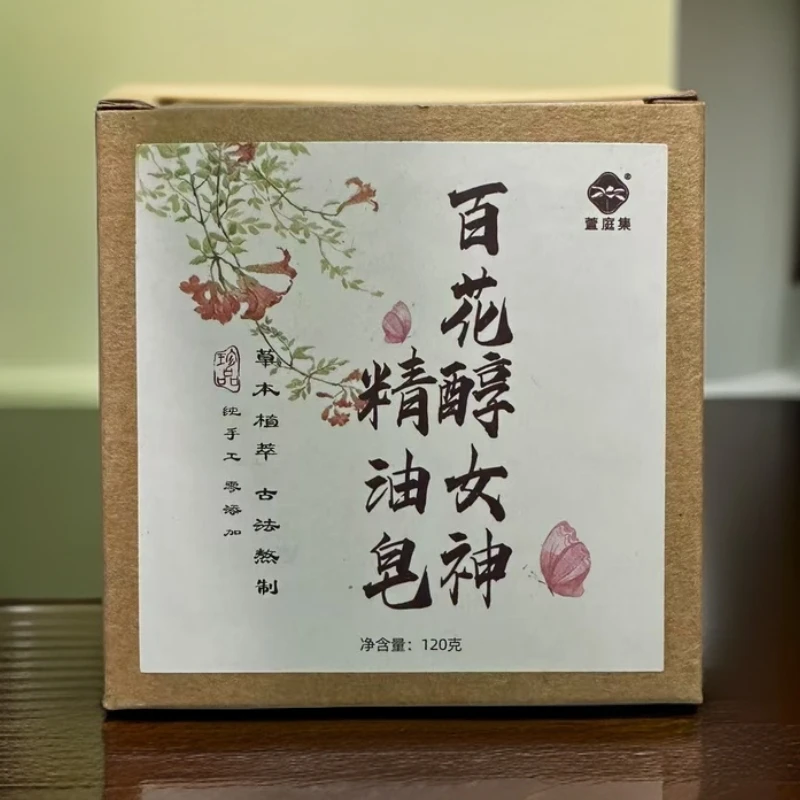 百花醇女神
精油皂
萱庭集
草本植萃 古法熬制
珍品
纯手工 零添加
净含量：120克